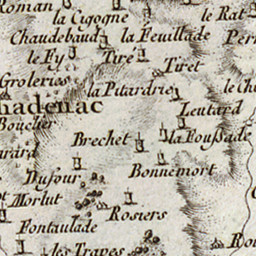 Roman
la Cigogne
le Rat
Chaudebaud
la Feuillade
le Fy
Tiré
Tiret
Groleries
la Pitardrie
hadenac
Leutard
Bouclier
Brechet
la Foussade
Bonnemort
Dufour
Morlut
Rosiers
Fontaulade
les Trapes